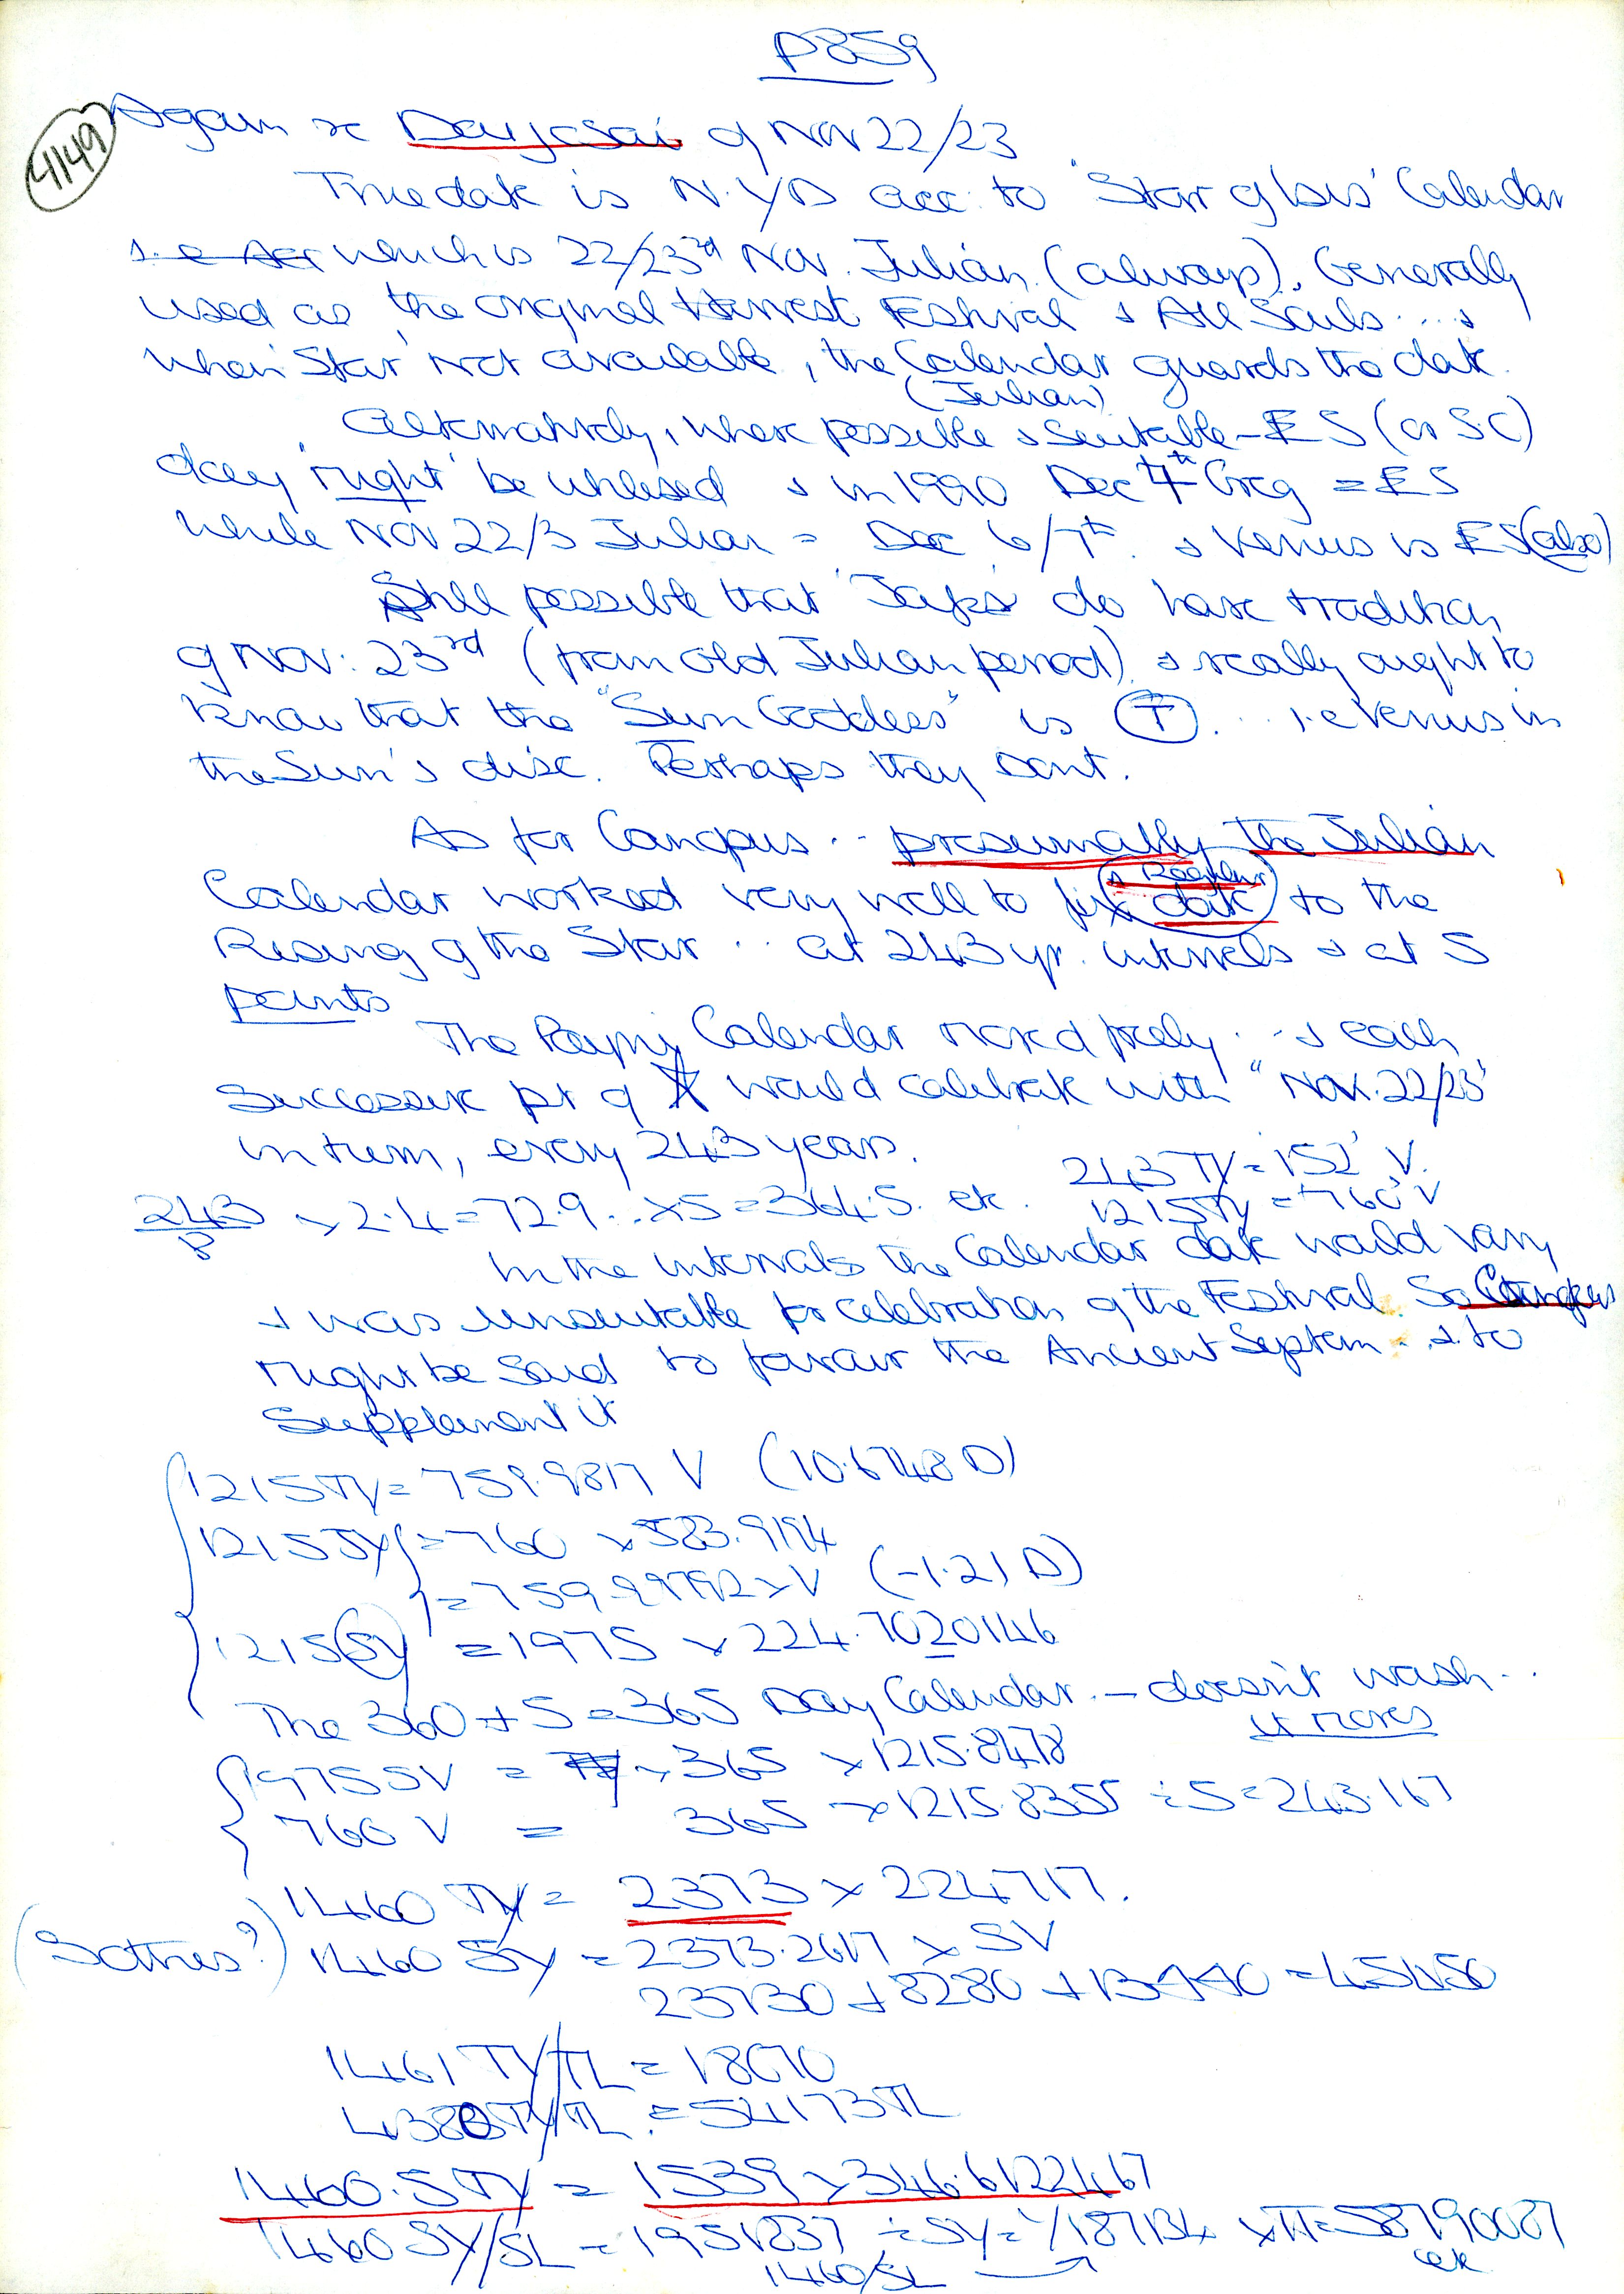 P859
4149
Again re Daijosai of Nov 22/23
True date is N.Y.D acc: to 'Star of Isis' Calendar
which is 22/23rd Nov. Julian (always). Generally
used as the original Harvest Festival & All Souls .... &
when 'Star' not available, the Calendar guards the date.
(Julian)
Alternatively, where possible & suitable - ES (or S.C)
day might be utilised & in 1990 Dec 4th Greg = ES
while Nov 22/3 Julian = Dec 6/7th. & Venus is ES (also)
Still possible that 'Japs' do have tradition
of Nov: 23rd (from old Julian period) & really ought to
know that the "Sun Goddess" is T ... i.e Venus in
the Sun's disc. Perhaps they dont.
As for Canopus .. presumably the Julian
Calendar worked very well to fix a Regular date to the
Rising of the Star .. at 243 yr. intervals & at 5
points
The Calendar moved freely .. & each
successive pt of ☆ would celebrate with "Nov. 22/23"
in turn, every 243 years.
243 TY = 152 V.
1215 TY = 760 V
243/8 × 2.4 = 72.9 .. ×5 = 364.5. etc.
In the intervals the Calendar date would vary
& was unsuitable for celebration of the Festival. So Canopus
might be said to favour the Ancient System .. & to
Supplement it
1215 TY = 759.9817 V (10.6748 D)
1215 JY = 760 × 583.9194
= 759.99792 × V (-1.21 D)
1215 SY = 1975 × 224.7020146
The 360 + 5 = 365 Day Calendar - doesn't wash ..
it moves
1975 SV = 365 × 1215.8478
760 V = 365 × 1215.8355 ÷ 5 = 243.167
1460 TY = 2373 × 224.717.
(Sothis?) 1460 SY = 2373.2617 × SV
23730 + 8280 + 13440 = 45450
1461 TY/TL = 18070
4380 TY/TL = 54173 TL
1460.5 TY = 1539 × 346.6122467
1460 SY/SL = 1951837 ÷ SY = 1/187134 × π = 58790087
1460/SL
etc